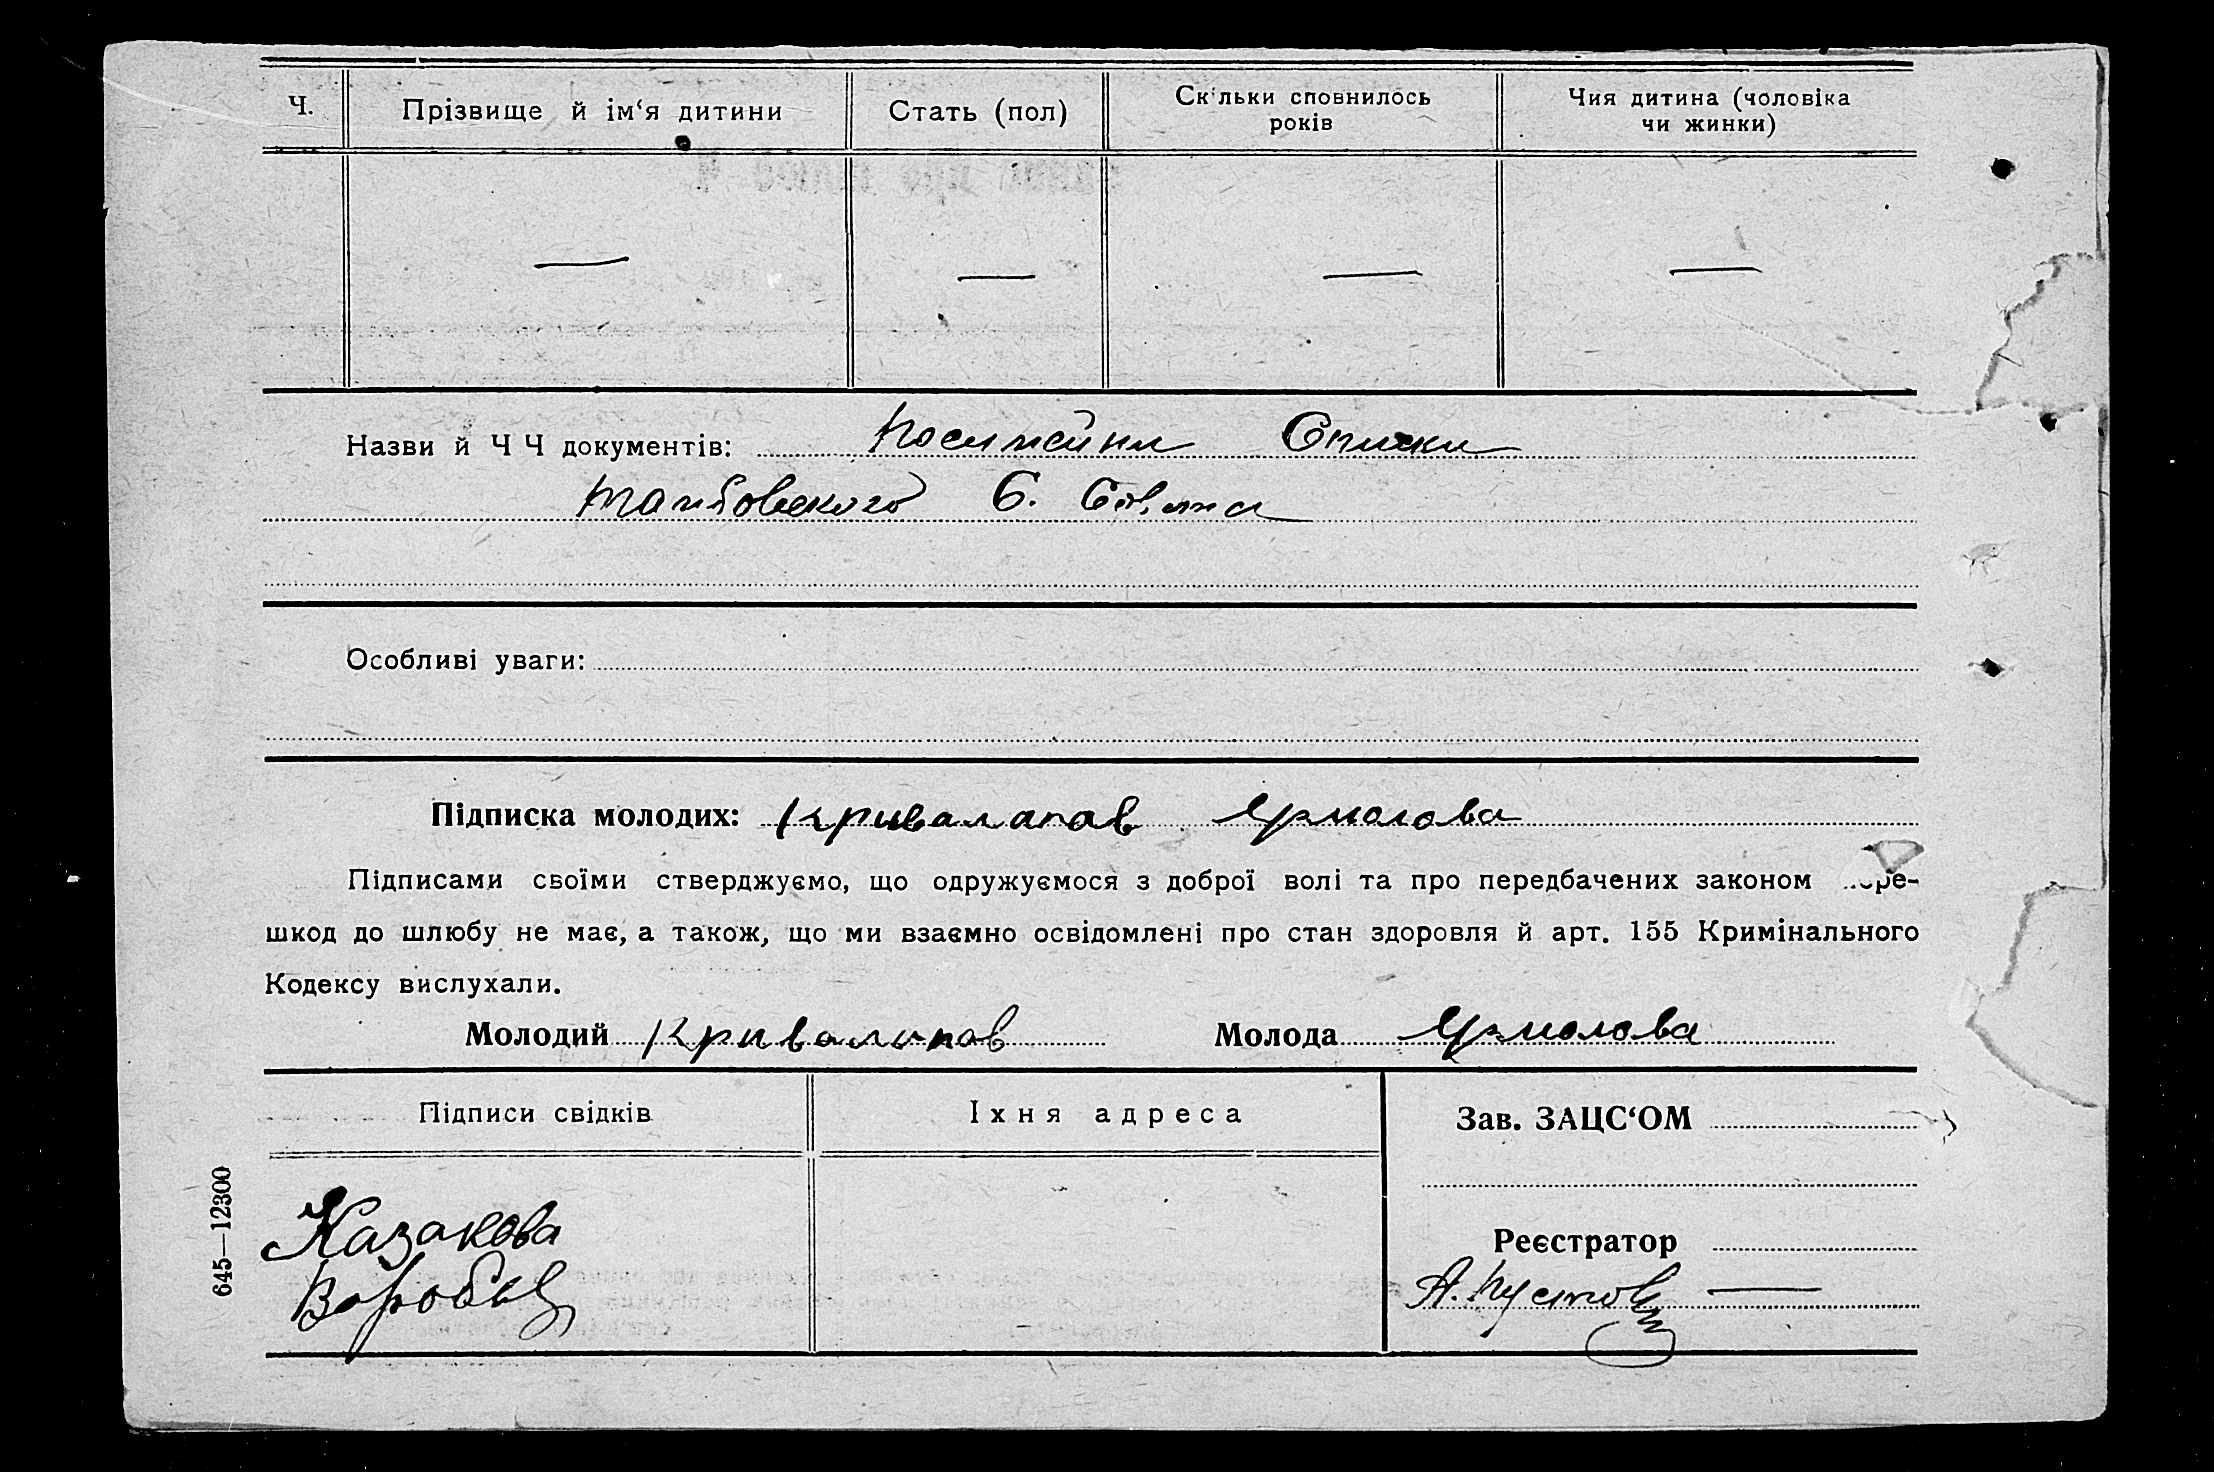 Ч.
Прізвище й ім‘я дитини
Стать (пол)
Скільки сповнилось
років
Чия дитина (чоловіка
чи жинки)
— — — —
Назви й Ч Ч документів: Посимейни Списки
С.
Особливі уваги:
Підписка молодих: Кривалапав Ярмолова
Підписами своїми стверджуємо, що одружуємося з доброї волі та про передбачених законом пере-
шкод до шлюбу не має, а також, що ми взаємно освідомлені про стан здоровля й арт. 155 Кримінального
Кодексу вислухали.
Молодий Кривалапав Молода Ярмолова
Підписи свідків
Їхня адреса
Зав. ЗАЦС‘ОМ
Казакова
Воробьев
Реєстратор
А. Пустов
645—12300